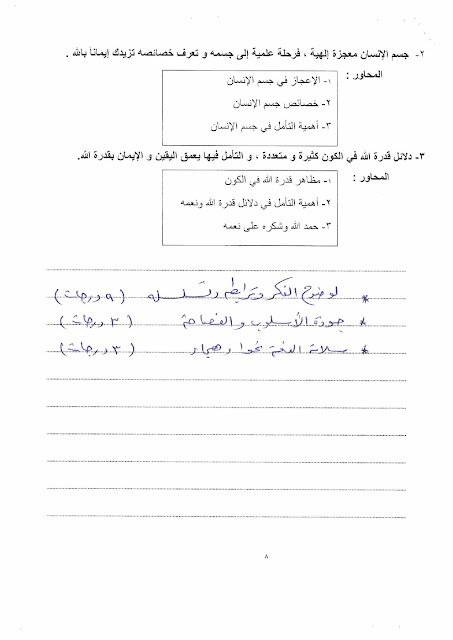 ٢- جسم الإنسان معجزة إلهية ، فرحلة علمية إلى جسمه و تعرف خصائصه تزيدك إيماناً بالله .
المحاور :
١- الإعجاز في جسم الإنسان
٢- خصائص جسم الإنسان
٣- أهمية التأمل في جسم الإنسان
٣- دلائل قدرة الله في الكون كثيرة و متعددة ، و التأمل فيها يعمق اليقين و الإيمان بقدرة الله.
المحاور :
١- مظاهر قدرة الله في الكون
٢- أهمية التأمل في دلائل قدرة الله ونعمه
٣- حمد الله وشكره على نعمه
* لوضوح الفكر وترابطه وتسلسله (٩ درجات)
* جودة الأسلوب والفصاحة (٣ درجات)
* سلامة اللغة نحوا وهجاء (٣ درجات)
٨